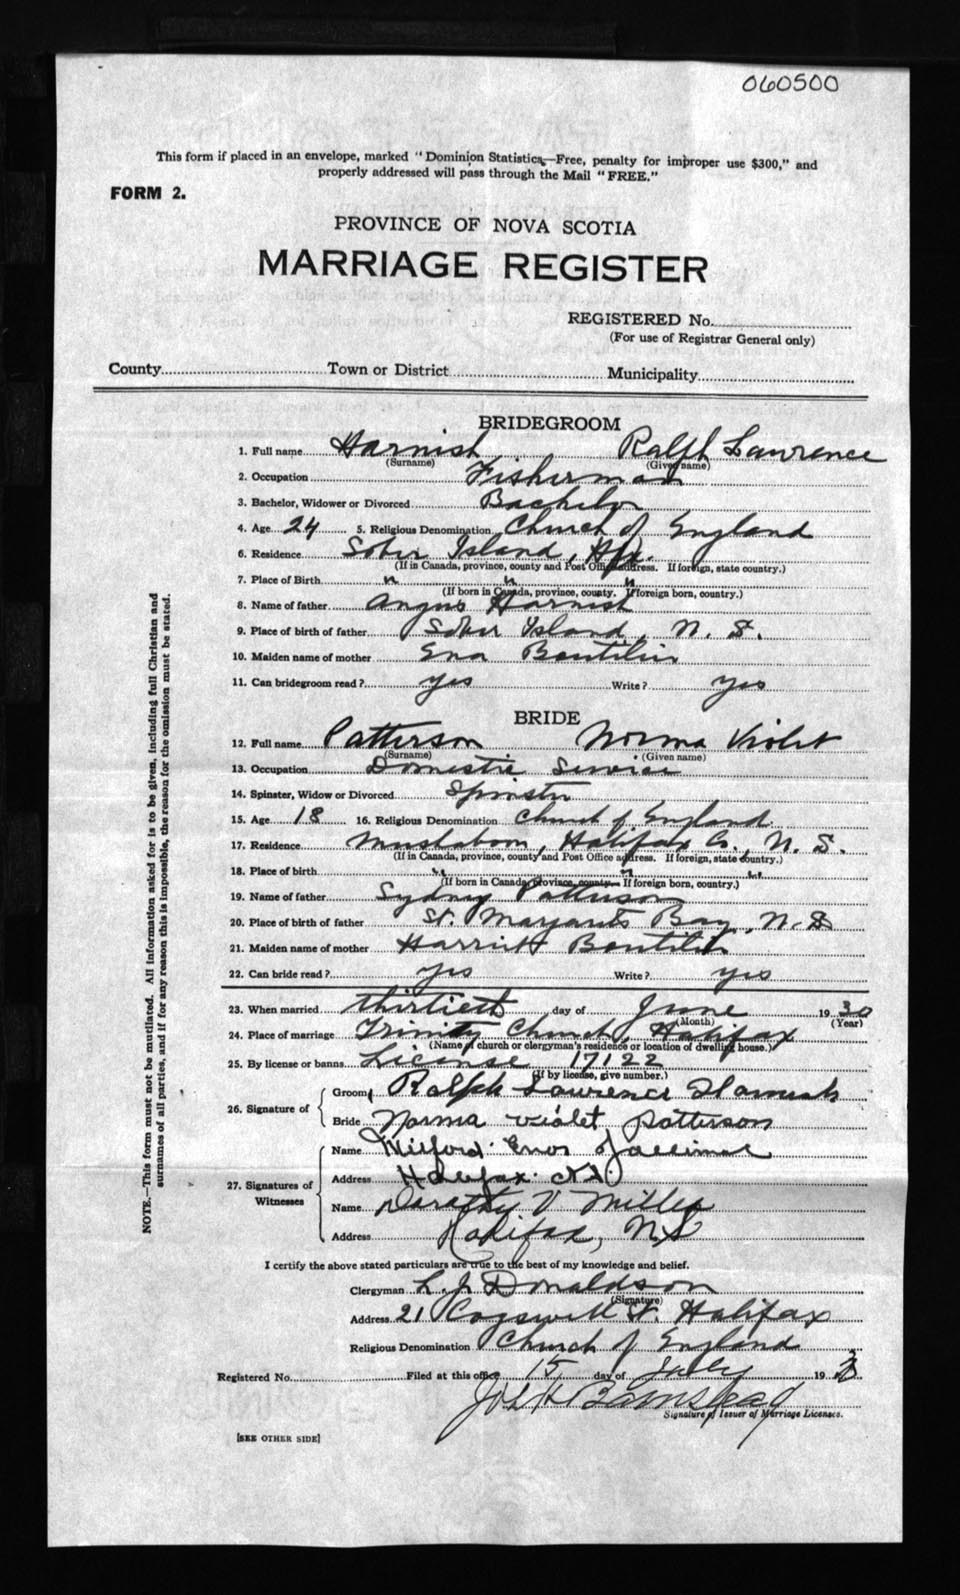 060500
This form if placed in an envelope, marked "Dominion Statistics,—Free, penalty for improper use $300," and
properly addressed will pass through the Mail "FREE."
FORM 2.
PROVINCE OF NOVA SCOTIA
MARRIAGE REGISTER
REGISTERED No.
(For use of Registrar General only)
County Town or District Municipality
BRIDEGROOM
1. Full name Harnish Ralph Lawrence
(Surname) (Given name)
2. Occupation Fisherman
3. Bachelor, Widower or Divorced Bachelor
4. Age 24 5. Religious Denomination Church of England
6. Residence Sober Island, Hfx.
(If in Canada, province, county and Post Office address. If foreign, state country.)
7. Place of Birth " " "
(If born in Canada, province, county. If foreign born, country.)
8. Name of father Angus Harnish
9. Place of birth of father Sober Island, N. S.
10. Maiden name of mother Ena Boutilier
11. Can bridegroom read? yes Write? yes
BRIDE
12. Full name Patterson Norma Violet
(Surname) (Given name)
13. Occupation Domestic Service
14. Spinster, Widow or Divorced Spinster
15. Age 18 16. Religious Denomination Church of England
17. Residence Mushaboom, Halifax Co., N. S.
(If in Canada, province, county and Post Office address. If foreign, state country.)
18. Place of birth " " "
(If born in Canada, province, county— If foreign born, country.)
19. Name of father Sydney Patterson
20. Place of birth of father St. Margarets Bay, N. S
21. Maiden name of mother Harriett Boutilier
22. Can bride read? yes Write? yes
23. When married thirtieth day of June 1930
(Month) (Year)
24. Place of marriage Trinity Church, Halifax
(Name of church or clergyman's residence or location of dwelling house.)
25. By license or banns License 17122
(If by license, give number.)
26. Signature of
Groom Ralph Lawrence Harnish
Bride Norma violet Patterson
27. Signatures of Witnesses
Name Milford Enos
Address Halifax N.S.
Name Dorothy V Miller
Address Halifax, N.S
I certify the above stated particulars are true to the best of my knowledge and belief.
Clergyman L. J. Donaldson
(Signature)
Address 21 Cogswell St. Halifax
Religious Denomination Church of England
Registered No. Filed at this office 15 day of July 1930
Barnstead
Signature of Issuer of Marriage Licenses.
[SEE OTHER SIDE]
NOTE.—This form must not be mutilated. All information asked for is to be given, including full Christian and
surnames of all parties, and if for any reason this is impossible, the reason for the omission must be stated.